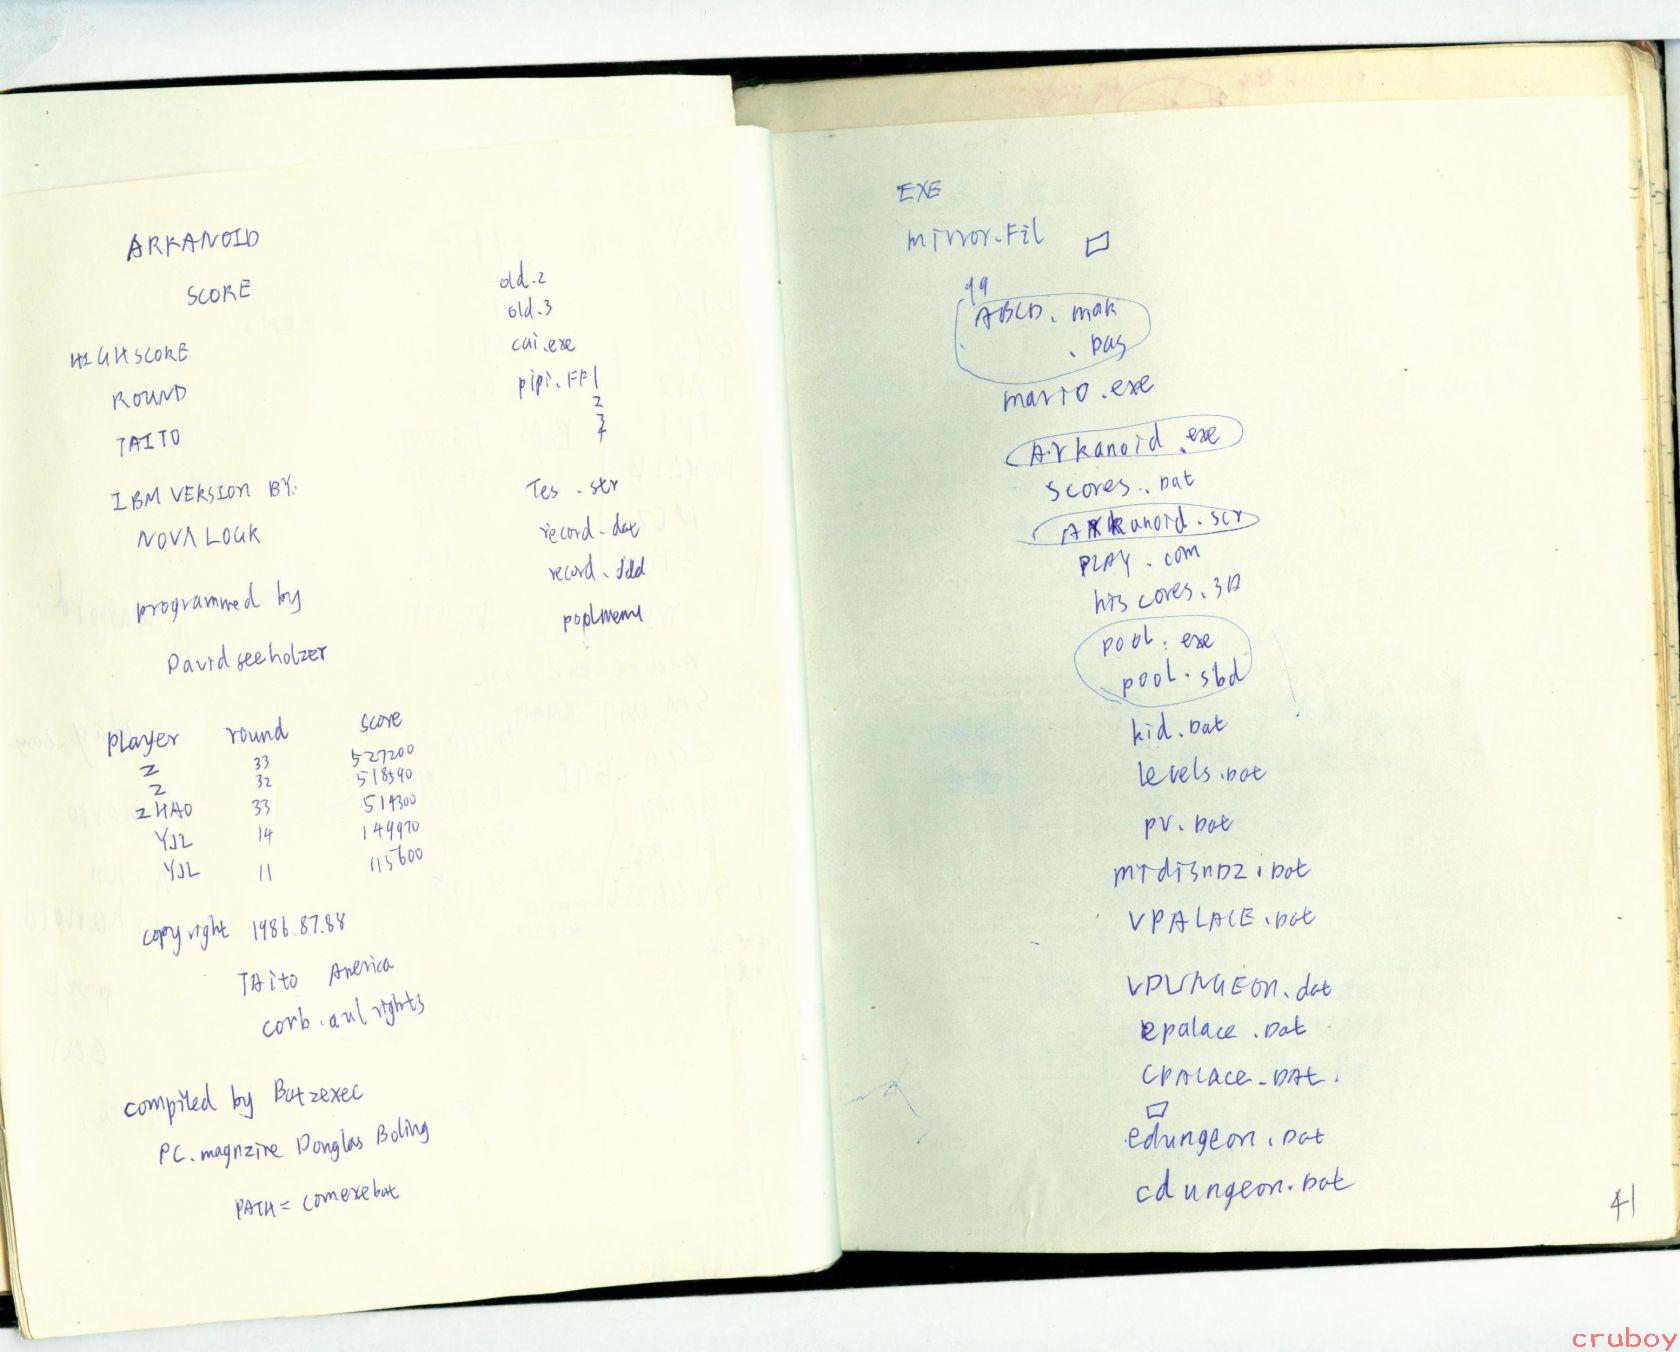 ARKANOID
SCORE
HIGHSCORE
ROUND
TAITO
IBM VERSION BY:
NOVA LOGK
programmed by
David seeholzer
player round score
Z 33 527200
Z 32 518390
ZHAO 33 514300
YJL 14 149970
YJL 11 115600
copyright 1986.87.88
TAito America
corb. aul rights
compiled by Batzexec
PC. magnzire Donglas Boling
PATH = comexebat
old.2
old.3
cai.exe
pipi.FF1
2
3
4
Tes .str
record.dat
record.ddd
poplmenu
EXE
mirror.Fil
99
ABCD. mak
. bas
mario.exe
Arkanoid.exe
scores.Dat
Arkanoid.scr
PLAY.com
hiscores.3D
pool.exe
pool.sbd
kid.Dat
levels.Dat
pv.Dat
midisnd2.Dat
VPALACE.Dat
VDUNGEon.dat
epalace.Dat
CPALace.DAt.
edungeon.Dat
cdungeon.Dat
41
cruboy